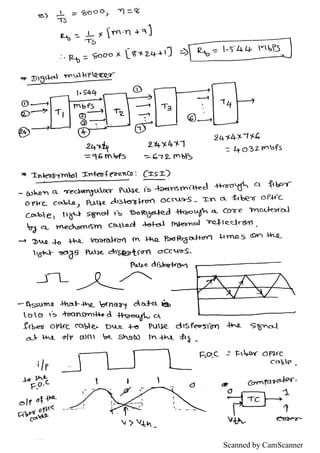 ⇒ 1/Ts = 8000, n=8
Rb = 1/Ts × [m·n + a]
∴ Rb = 8000 × [8×24+1] ⇒ Rb = 1.544 Mbps
* Digital multiplexer
1.544 mbps
① ② 24 T1 ① ② ③ ④ T2 ① ⑦ T3 ① ⑥ T4
24×4 24×4×7 24×4×7×6
=96 mbfs =672 mbfs = 4032 mbfs
* Intersymbol Interference: (ISI)
- When a rectangular pulse is transmitted through a fiber
optic cable, pulse distortion occurs. In a fiber optic
cable, light signal is propagated through a core material
by a mechanism called total internal reflection.
→ Due to the variation in the propagation times on the
light rays pulse dispertion occurs.
Pulse distortion
- Assume that the binary data is
1010 is transmitted through a
fiber optic cable. Due to pulse dispersion the signal
at the o/p will be show in the fig.
F.O.C = Fiber optic cable.
i/p to the F.O.C
1 1 1 0 0
Comparator.
o/p of the Fiber optic cable
V > Vth.
0 TC 1
Vth error
Scanned by CamScanner